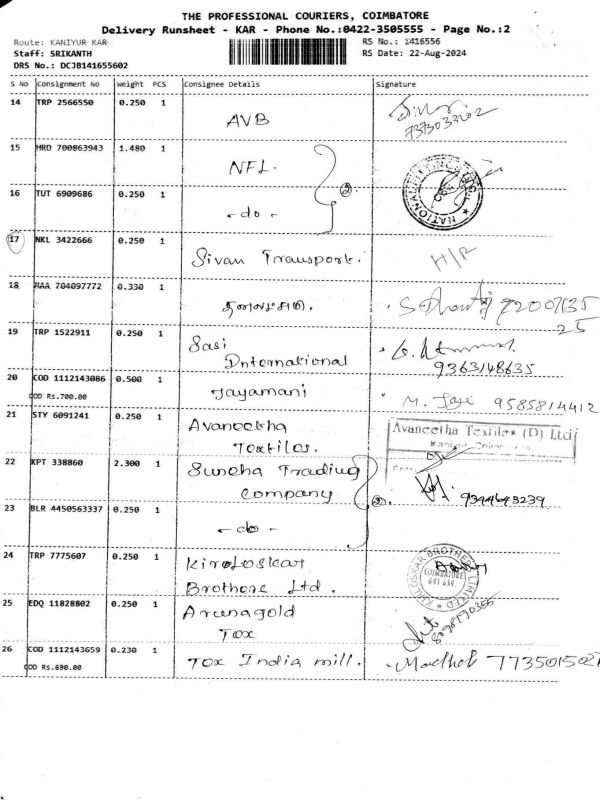 THE PROFESSIONAL COURIERS, COIMBATORE
Delivery Runsheet - KAR - Phone No.:0422-3505555 - Page No.:2
Route: KANIYUR KAR
RS No.: 1416556
Staff: SRIKANTH
RS Date: 22-Aug-2024
DRS No.: DCJB141655602
S No Consignment No Weight PCS Consignee Details Signature
14 TRP 2566550 0.250 1
AVB
15 HRD 700863943 1.480 1
NFL.
②
16 TUT 6909686 0.250 1
-do-
17 NKL 3422666 0.250 1
Sivan Transport.
H/R
18 MAA 704097772 0.330 1
19 TRP 1522911 0.250 1
Sasi
International
9363148635
20 COD 1112143086 0.500 1
Jayamani
COD Rs.700.00
9585814412
21 STY 6091241 0.250 1
Avaneetha
Textiles.
Avaneetha Textiles (D) Ltd
22 KPT 338860 2.300 1
Suneha Trading
Company
②.
9344693239
23 BLR 4450563337 0.250 1
-do-
24 TRP 7775607 0.250 1
Kiroloskar
Brothers Ltd.
KIRLOSKAR BROTHERS LIMITED
COIMBATORE
641 659.
25 EDQ 11828802 0.250 1
Arunagold
Tex
26 COD 1112143659 0.230 1
Tex India mill.
COD Rs.690.00